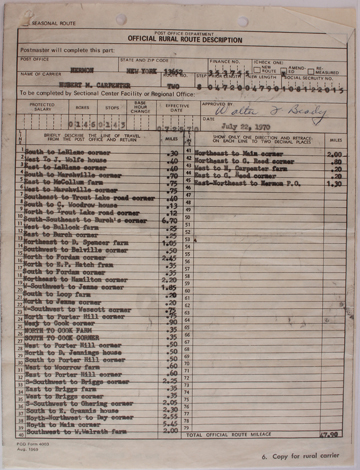 SEASONAL ROUTE
POST OFFICE DEPARTMENT
OFFICIAL RURAL ROUTE DESCRIPTION
Postmaster will complete this part:
POST OFFICE STATE AND ZIP CODE FINANCE NO. (CHECK ONE)
HERMON NEW YORK 13652
NAME OF CARRIER ROUTE NO. SOCIAL SECURITY NO.
HUBERT M. CARPENTER TWO
To be completed by Sectional Center Facility or Regional Office:
PROTECTED SALARY BOXES STOPS BASE HOUR CHANGE EFFECTIVE DATE APPROVED BY
Walter J Brady
DATE
July 22, 1970
BRIEFLY DESCRIBE THE LINE OF TRAVEL FROM THE POST OFFICE AND RETURN MILES
SHOW ONLY ONE DIRECTION AND RETRACE ON EACH LINE TO TWO DECIMAL PLACES MILES
South to LaBlanc corner .30
West To J. Wolfe house .40
North to LaBlanc corner .40
South to Marshville corner .70
East to McCollum farm .75
West to Marshville corner .75
Southeast to Trout Lake road corner .40
South to C. Woodrow house .13
North to Trout Lake road corner .12
South-Southeast to Burch's corner 6.70
West to Bullock farm .25
East to Burch corner .25
Northeast to D. Spencer farm 1.05
Southwest to Belville corner .50
North to Fordam corner 2.45
North to H.P. Hatch farm .35
South to Fordam corner .35
Northeast to Hamilton corner 2.20
Southwest to Jenne corner 1.85
South to Loop farm .20
North to Jenne corner .20
Southwest to Wescott corner
North to Porter Hill corner .75
West to Cook corner .90
NORTH TO COOK FARM .35
SOUTH TO COOK CORNER .35
West to Porter Hill corner .50
North to D. Jennings house .50
South to Porter Hill corner .50
West to Woodrow farm .60
East to Porter Hill corner .60
S-Southwest to Briggs corner 2.25
East to Briggs farm .35
West to Briggs corner .35
S-Southwest to Ghering corner 2.05
South to K. Gyannis house 2.30
North-Northwest to Day corner 2.55
North to Main corner 5.45
Southwest to W.Walrath farm 2.00
Northeast to Main corner 2.00
Northwest to G. Reed corner .88
West to H. Carpenter farm .20
East to G. Reed corner .20
West-Northwest to Hermon P.O. 1.30
TOTAL OFFICIAL ROUTE MILEAGE 47.98
POD Form 4003
Aug. 1969
6. Copy for rural carrier